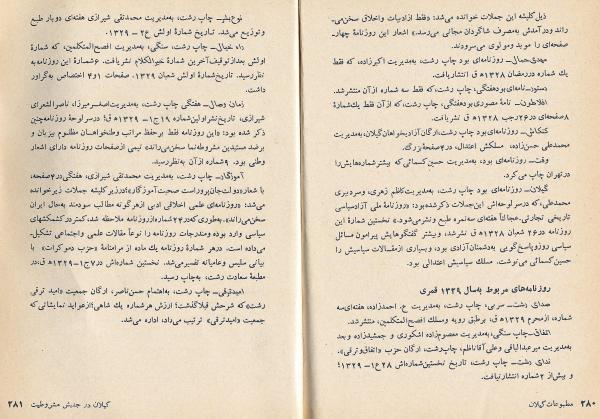 ذیل کلیشه این جملات خوانده می‌شد: «فقط از ادبیات و اخلاق سخن می‌-
راند و درآمدش به‌مصرف شاگردان مجانی می‌رسد.» اشعار این روزنامهٔ چهار-
صفحه‌ای را موید و مولوی می‌سرودند.
مهدی‌حمال - روزنامه‌ای بود چاپ رشت، به‌مدیریت اکبرزاده، که فقط
یک شماره در رمضان ۱۳۲۸ه ق انتشار یافت.
دستور - نامه‌ای بود هفتگی، چاپ رشت، که فقط سه شماره از آن منتشر شد.
افلاطون - نامهٔ مصوری بود هفتگی، چاپ رشت، که از آن فقط یک شمارهٔ
۸صفحه‌ای در ۲۶رجب ۱۳۲۸ه ق نشر یافت.
کنکاش - روزنامه‌ای بود چاپ رشت، ارگان آزادیخواهان گیلان، به‌مدیریت
محمدعلی حسن‌زاده، مسلکش اعتدال، در ۴صفحهٔ بزرگ.
وقت - روزنامه‌ای بود، به‌مدیریت حسین کسمائی که بیشتر شماره‌هایش را
در تهران چاپ می‌کرد.
گیلان - روزنامه‌ای بود چاپ رشت، به‌مدیریت کاظم زهری، و سردبیری
محمدعلی، که در سرلوحه‌اش این جملات ذکر شده بود: «روزنامهٔ ملی آزاد سیاسی
تاریخی تجارتی. عجالتاً هفته‌ای سه‌نمره طبع و نشر می‌شود.» نخستین شمارهٔ این
روزنامه در ۲۶ شعبان ۱۳۲۸ه ق نشر شد، و بیشتر گفتگوهایش پیرامون مسائل
سیاسی روز و پاسخ‌گویی به‌دشمنان آزادی بود، و بسیاری از مقالات سیاسیش را
حسین کسمائی می‌نوشت. مسلک سیاسیش اعتدالی بود.
روزنامه‌های مربوط به‌سال ۱۳۲۹ قمری
صدای رشت - سربی، چاپ رشت، به‌مدیریت ع. احمدزاده، هفته‌ای سه
شماره، از محرم ۱۳۲۹ه ق، بر طبق رویه و مسلک افصح‌المتکلمین، منتشر شد.
اتفاق - چاپ سنگی، به‌مدیریت معصوم‌زاده اشکوری و جمشید زاده و بعد
به‌مدیریت میرعبدالباقی وعلی آقا ناظم، چاپ رشت، ارگان حزب «اتفاق وترقی».
ندای رشت - چاپ رشت، تاریخ نخستین شماره‌اش ۲۸ع۱-۱۳۲۹؛
و بیش از ۲شماره انتشار نیافت.
۲۸۰ مطبوعات گیلان
نوع‌بشر - چاپ رشت، به‌مدیریت محمدتقی شیرازی هفته‌ای دوبار طبع
وتوزیع می‌شد. تاریخ شمارهٔ اولش ع۲-۱۳۲۹ ق.
راه خیال - چاپ رشت، سنگی، به‌مدیریت افصح‌المتکلمین، که شمارهٔ
اولش بعد از توقیف آخرین شمارهٔ خیرالکلام نشر یافت. ۶شمارهٔ این روزنامه به
نظر رسید. تاریخ شمارهٔ اولش شعبان ۱۳۲۹. صفحات ۱و۴ اختصاص به‌گراور
داشت.
زمان وصال - هفتگی چاپ رشت، به‌مدیریت اصغر میرزا، ناصرالشعرای
شیرازی، تاریخ نشر اولین شماره ۱۹ ج۱-۱۳۲۹ه ق؛ در سرلوحهٔ روزنامه‌چنین
ذکر شده بود: «این روزنامه فقط برحفظ مراتب وطنخواهان مظلوم یزبان و
برضد مستبدین مشروطه‌نما سخن می‌راند» نیمی از صفحات روزنامه دارای اشعار
وطنی بود. ۹شماره از آن به‌نظر رسید.
آموزگار - چاپ رشت، به‌مدیریت محمدتقی شیرازی، هفتگی در ۴صفحه،
با شعار «دولت‌جان‌پرور است صحبت آموزگار» در زیر کلیشه جملات زیر خوانده
می‌شد: «روزنامه‌ای علمی اخلاقی ادبی از هر گونه مطالب سودمند به‌حال ایران
سخن می‌راند»، به‌طوری‌که در ۲۴ شماره از روزنامه ملاحظه شد، کمتر در کشمکشهای
سیاسی وارد بوده و مندرجات روزنامه را نوعاً مقالات علمی و اجتماعی تشکیل-
می‌داده است، در هر شمارهٔ روزنامه یک ماده از مرامنامهٔ «حزب دموکرات» با
بیانی سلیس وعامیانه تفسیر می‌شد. نخستین شماره‌اش در ۷ج۱-۱۳۲۹ه ق، در
مطبعهٔ سعادت رشت، به‌چاپ رسید.
امید ترقی - چاپ رشت، به‌اهتمام حسن‌ناصر، ارگان جمعیت «امید ترقی
رشت» که شرحش قبلاً گذشت؛ ارزش هر شماره یک شاهی؛ از عواید نمایشاتی که
جمعیت «امید ترقی» ترتیب می‌داد، اداره می‌شد.
گیلان در جنبش مشروطیت ۲۸۱